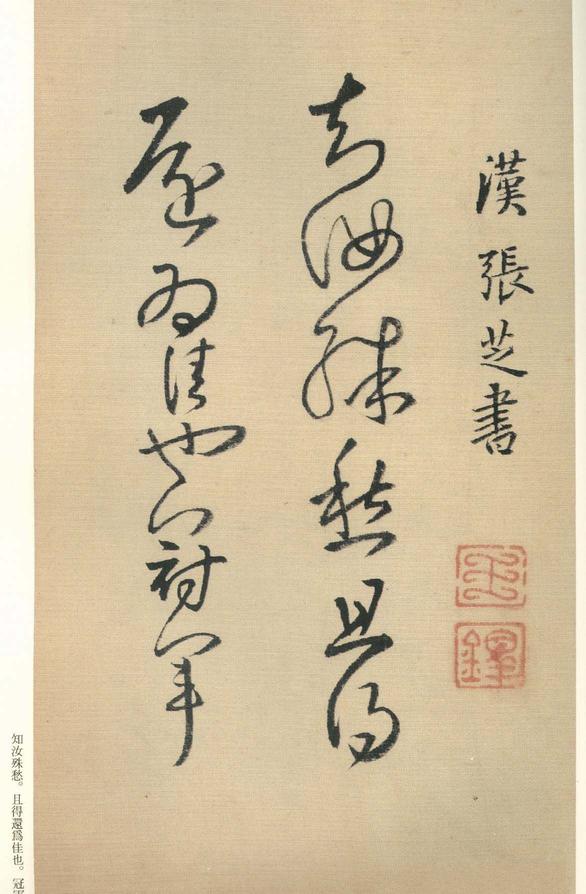 漢張芝書
王鐸
知汝殊愁且得
還為佳也冠軍
知汝殊愁。且得還爲佳也。冠軍